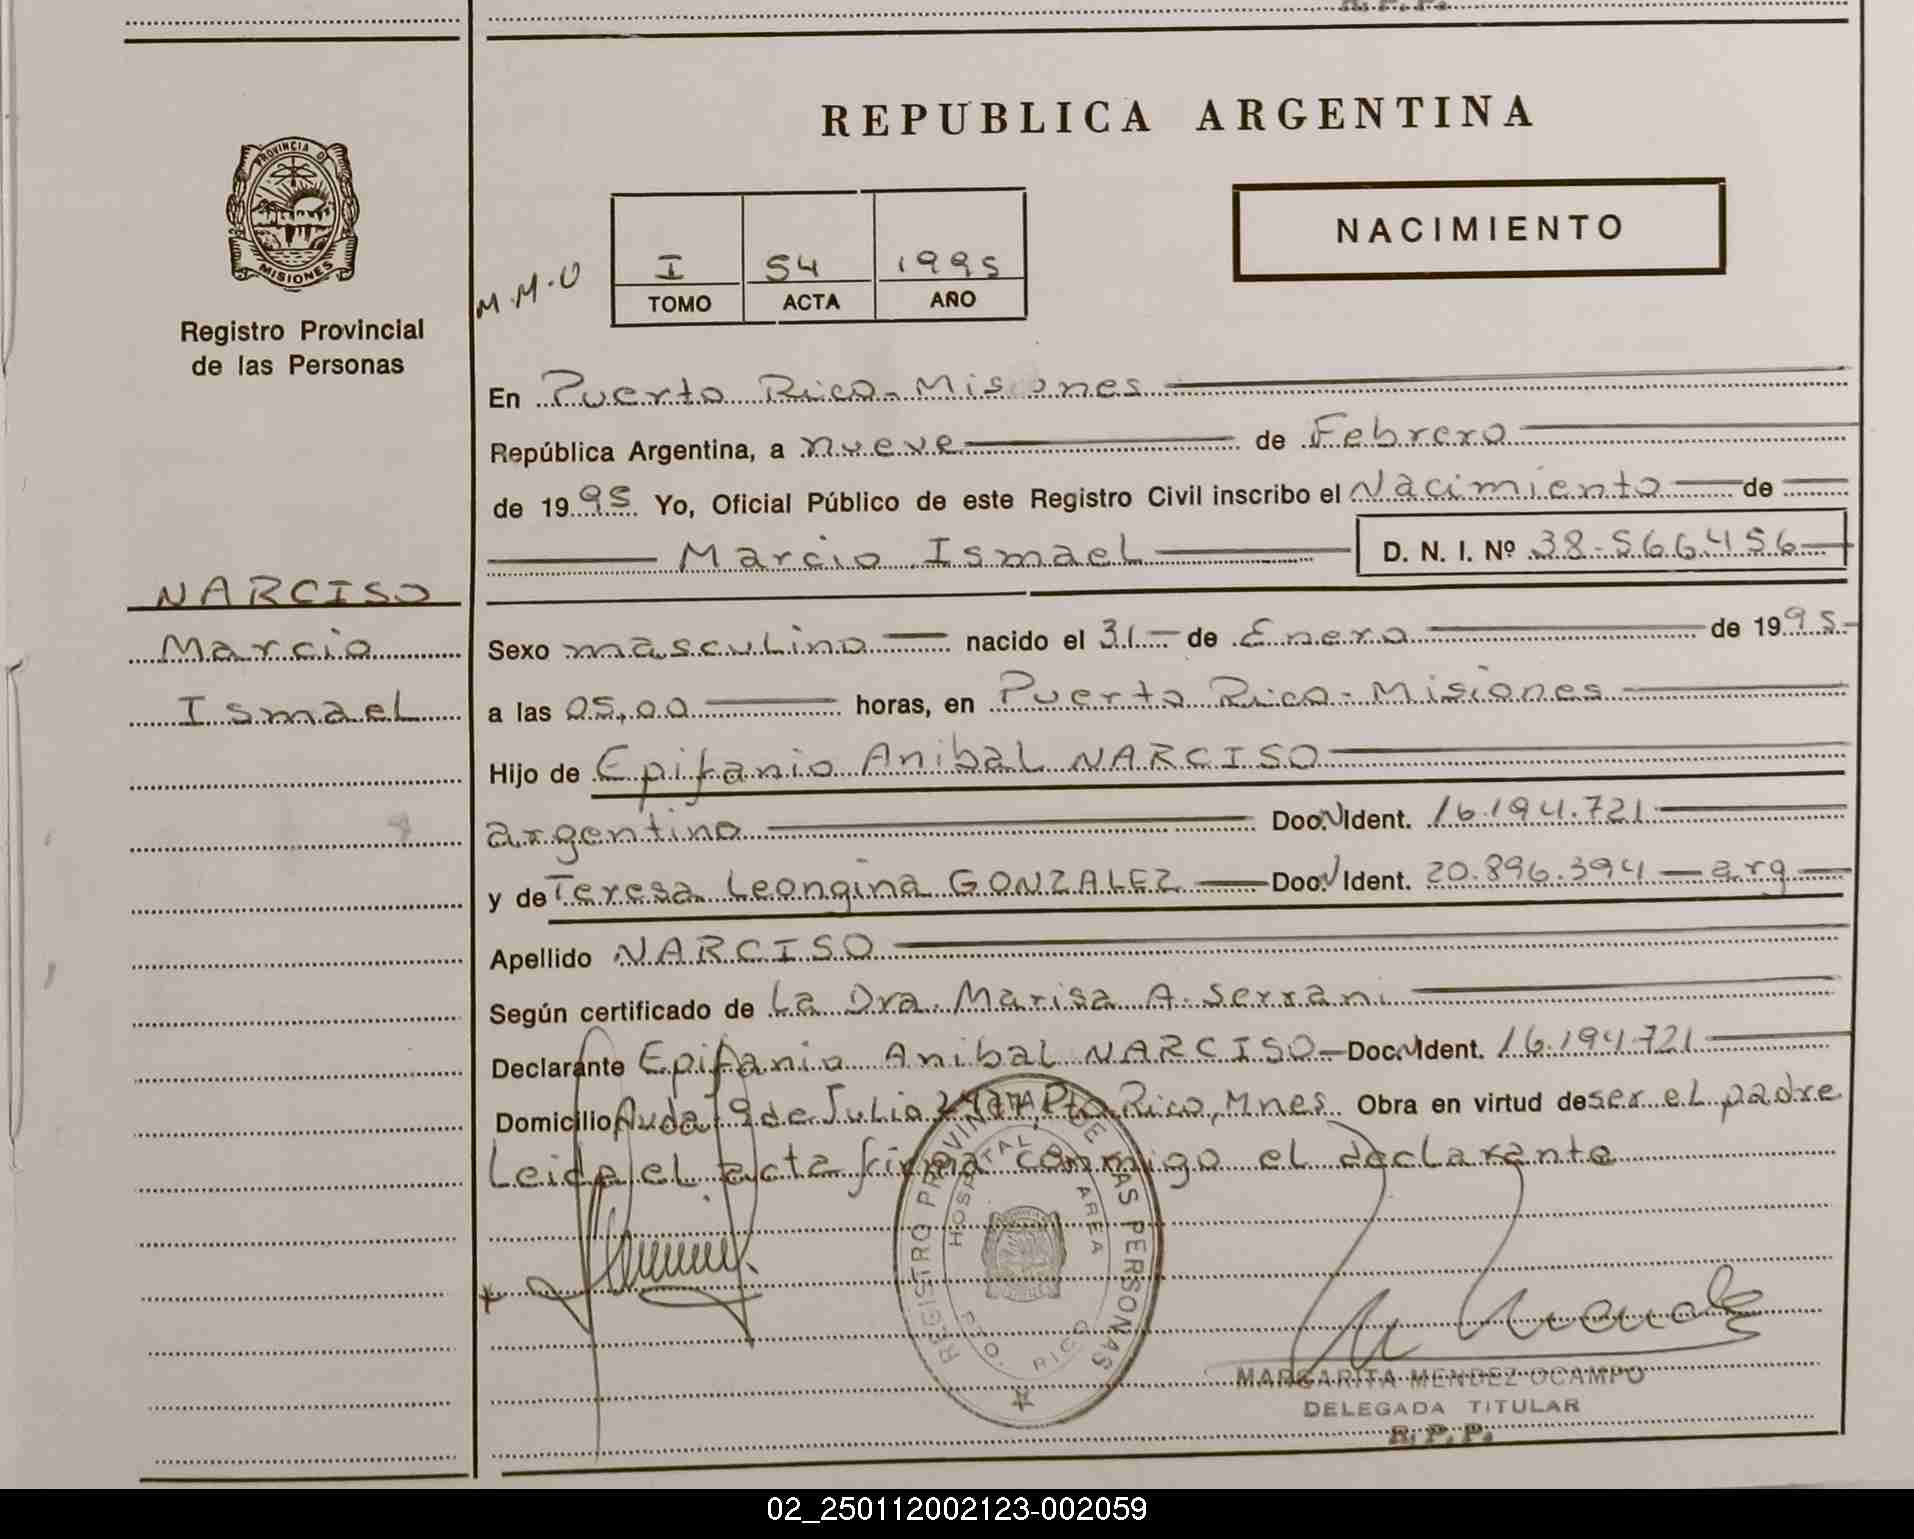 R. P. P.
REPUBLICA ARGENTINA
PROVINCIA D
MISIONES
Registro Provincial
de las Personas
M.M.O
I 54 1995
TOMO ACTA AÑO
NACIMIENTO
En Puerto Rico - Misiones
República Argentina, a nueve de Febrero
de 1995 Yo, Oficial Público de este Registro Civil inscribo el Nacimiento de
Marcio Ismael D. N. I. Nº 38-566456
NARCISO
Marcio
Ismael
Sexo masculino nacido el 31 de Enero de 1995
a las 05,00 horas, en Puerto Rico - Misiones
Hijo de Epifanio Anibal NARCISO
argentino Doc. N Ident. 16.194.721
y de Teresa Leongina GONZALEZ Doc. N Ident. 20.896.394 - arg
Apellido NARCISO
Según certificado de La Dra. Marisa A. Serrani
Declarante Epifanio Anibal NARCISO - Doc. N Ident. 16.194.721
Domicilio Avda 9 de Julio Pto Rico, Mnes Obra en virtud de ser el padre
Leida el acta firma conmigo el declarante
REGISTRO PROVINCIAL DE LAS PERSONAS
HOSPITAL DE AREA
PTO. RICO
MARGARITA MENDEZ OCAMPO
DELEGADA TITULAR
R. P. P.
02_250112002123-002059